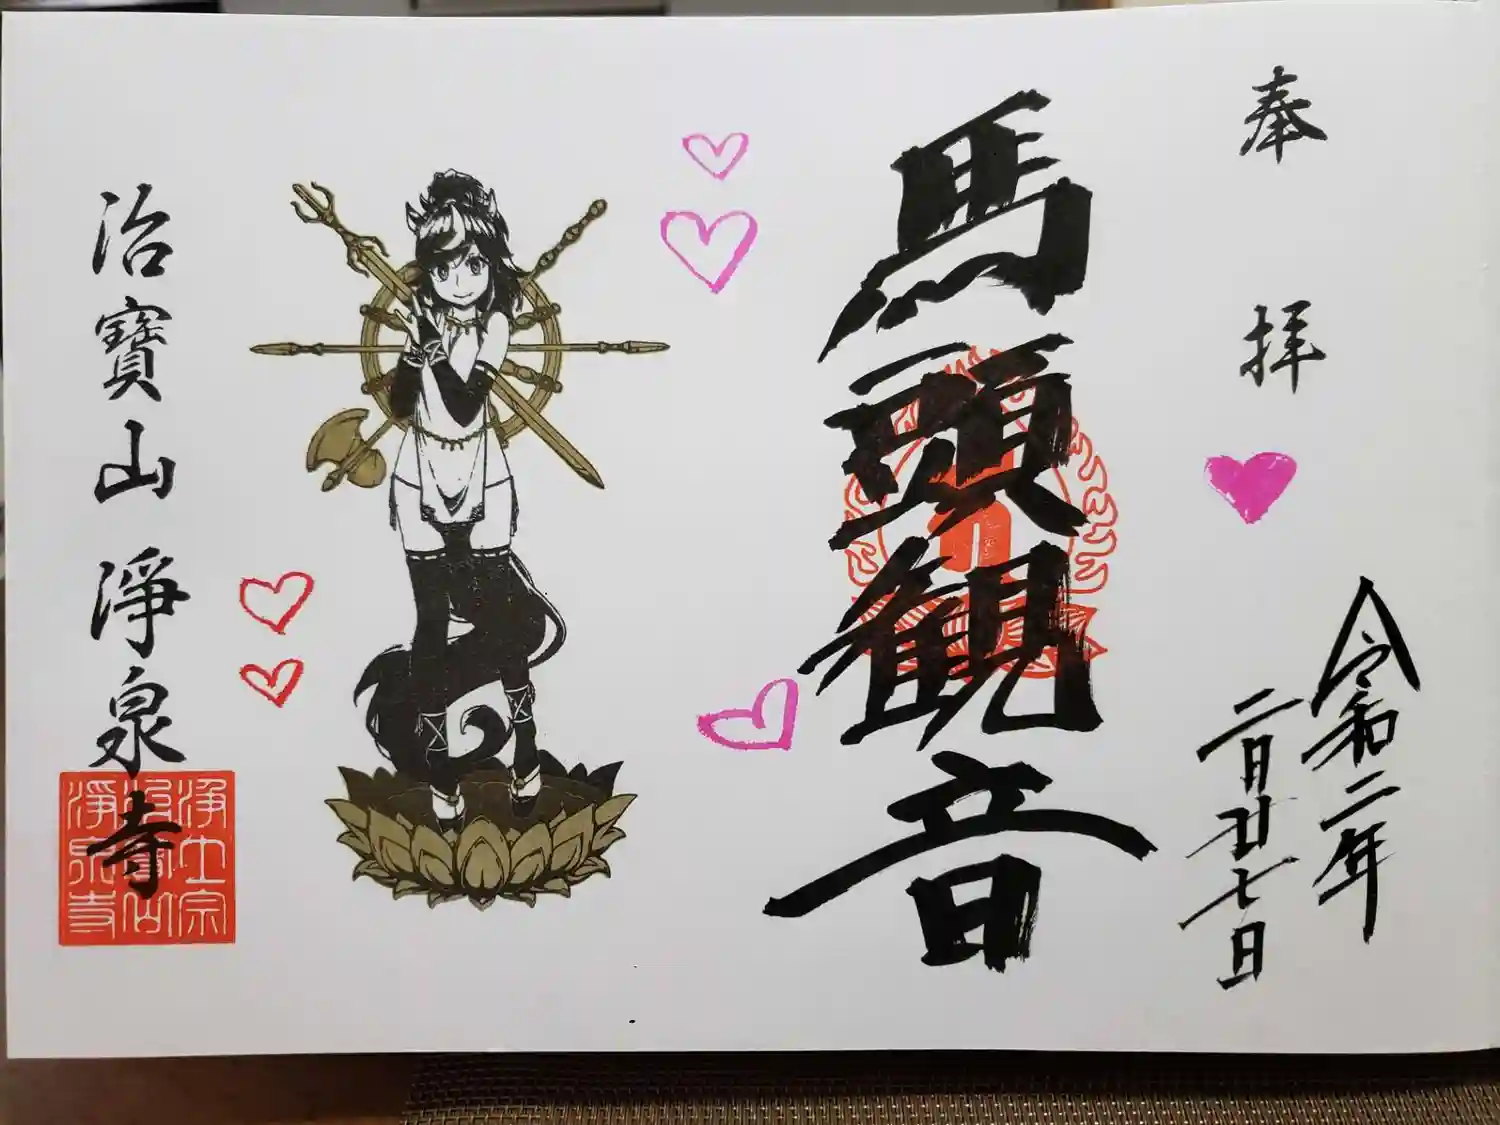 奉拝
令和二年
二月廿七日
馬頭観音
治寶山淨泉寺
浄土宗
治寶山
淨泉寺